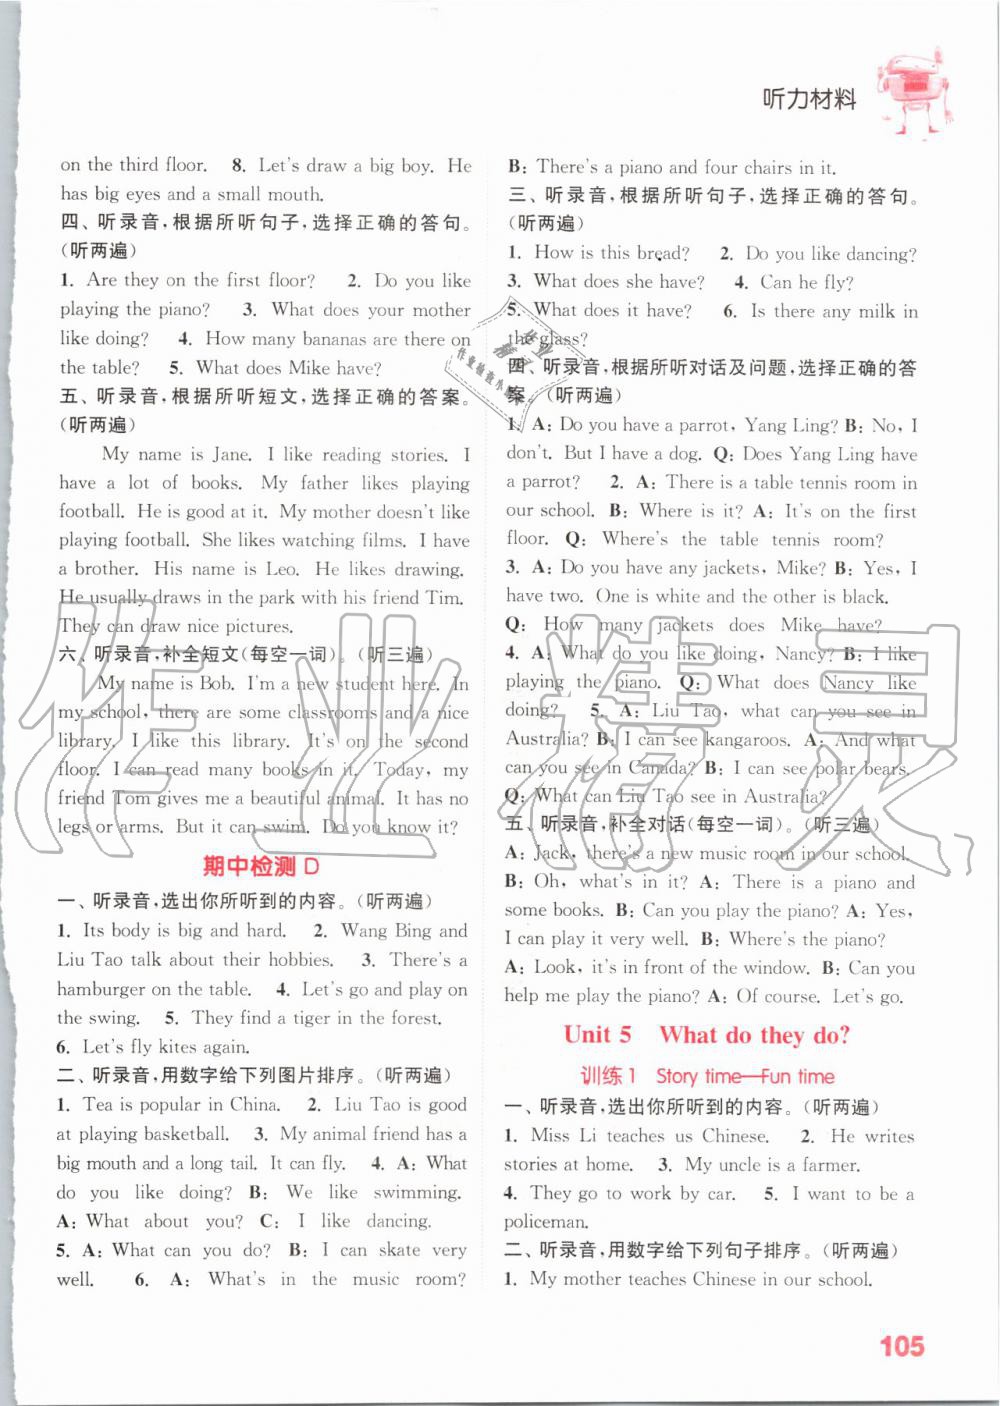 听力材料
on the third floor. 8. Let's draw a big boy. He
has big eyes and a small mouth.
四、听录音,根据所听句子,选择正确的答句。
(听两遍)
1. Are they on the first floor? 2. Do you like
playing the piano? 3. What does your mother
like doing? 4. How many bananas are there on
the table? 5. What does Mike have?
五、听录音,根据所听短文,选择正确的答案。
(听两遍)
My name is Jane. I like reading stories. I
have a lot of books. My father likes playing
football. He is good at it. My mother doesn't like
playing football. She likes watching films. I have
a brother. His name is Leo. He likes drawing.
He usually draws in the park with his friend Tim.
They can draw nice pictures.
六、听录音,补全短文(每空一词)。(听三遍)
My name is Bob. I'm a new student here. In
my school, there are some classrooms and a nice
library. I like this library. It's on the second
floor. I can read many books in it. Today, my
friend Tom gives me a beautiful animal. It has no
legs or arms. But it can swim. Do you know it?
期中检测 D
一、听录音,选出你所听到的内容。(听两遍)
1. Its body is big and hard. 2. Wang Bing and
Liu Tao talk about their hobbies. 3. There's a
hamburger on the table. 4. Let's go and play on
the swing. 5. They find a tiger in the forest.
6. Let's fly kites again.
二、听录音,用数字给下列图片排序。(听两遍)
1. Tea is popular in China. 2. Liu Tao is good
at playing basketball. 3. My animal friend has a
big mouth and a long tail. It can fly. 4. A: What
do you like doing? B: We like swimming.
A: What about you? C: I like dancing.
5. A: What can you do? B: I can skate very
well. 6. A: What's in the music room?
B: There's a piano and four chairs in it.
三、听录音,根据所听句子,选择正确的答句。
(听两遍)
1. How is this bread? 2. Do you like dancing?
3. What does she have? 4. Can he fly?
5. What does it have? 6. Is there any milk in
the glass?
四、听录音,根据所听对话及问题,选择正确的答
案。(听两遍)
1. A: Do you have a parrot, Yang Ling? B: No, I
don't. But I have a dog. Q: Does Yang Ling have
a parrot? 2. A: There is a table tennis room in
our school. B: Where is it? A: It's on the first
floor. Q: Where's the table tennis room?
3. A: Do you have any jackets, Mike? B: Yes, I
have two. One is white and the other is black.
Q: How many jackets does Mike have?
4. A: What do you like doing, Nancy? B: I like
playing the piano. Q: What does Nancy like
doing? 5. A: Liu Tao, what can you see in
Australia? B: I can see kangaroos. A: And what
can you see in Canada? B: I can see polar bears.
Q: What can Liu Tao see in Australia?
五、听录音,补全对话(每空一词)。(听三遍)
A: Jack, there's a new music room in our school.
B: Oh, what's in it? A: There is a piano and
some books. B: Can you play the piano? A: Yes,
I can play it very well. B: Where's the piano?
A: Look, it's in front of the window. B: Can you
help me play the piano? A: Of course. Let's go.
Unit 5 What do they do?
训练1 Story time—Fun time
一、听录音,选出你所听到的内容。(听两遍)
1. Miss Li teaches us Chinese. 2. He writes
stories at home. 3. My uncle is a farmer.
4. They go to work by car. 5. I want to be a
policeman.
二、听录音,用数字给下列句子排序。(听两遍)
1. My mother teaches Chinese in our school.
105
作业精灵